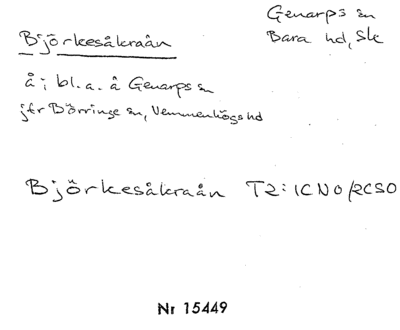 Genarps sn
Bara hd, Sk
Björkesåkraån
å; bl. a. å Genarps sn
jfr Börringe sn, Vemmenhögs hd
Björkesåkraån T2: 1CNO/2CSO
Nr 15449